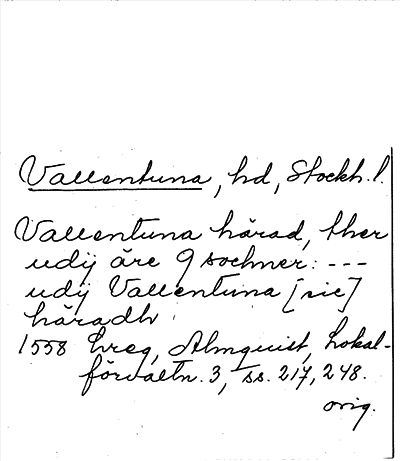 Vallentuna, hd, Stockh. l.
Vallentuna hårad, ther
udij äre 9 sochner: ---
udij Vallentuna [sic]
häradh
1558 hreg, Almquist, Lokal-
förvaltn. 3, ss. 217, 248.
orig.